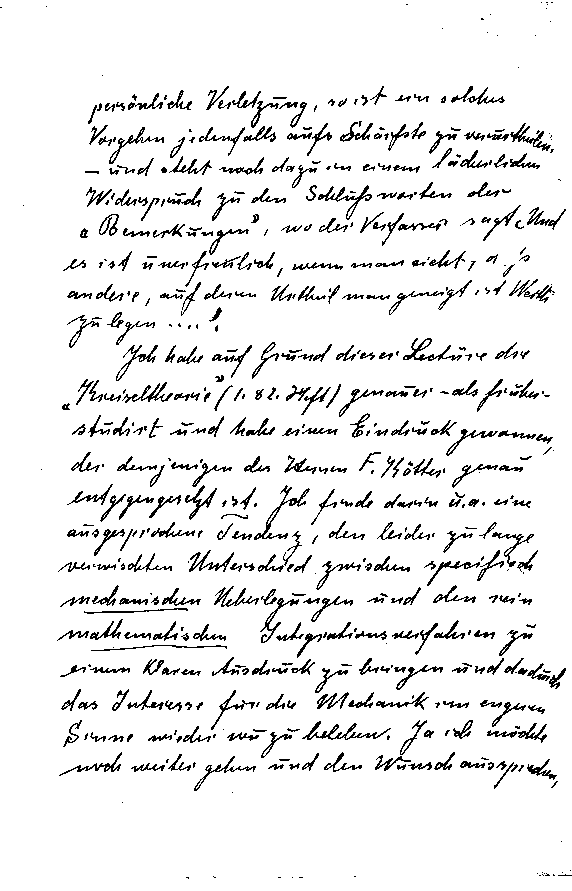 persönliche Verletzung, so ist ein solches
Vorgehen jedenfalls aufs Schärfste zu verurtheilen,
– und steht noch dazu in einem lächerlichen
Widerspruch zu den Schlußworten der
„Bemerkungen", wo der Verfasser sagt „Und
es ist unerfreulich, wenn man sieht,
andere, auf deren Urtheil man geneigt ist Werth
zu legen ....".
Ich habe auf Grund dieser Lectüre die
„Kreiseltheorie" (1. & 2. Heft) genauer – als früher –
studirt und habe einen Eindruck gewonnen,
der demjenigen des Herrn F. Kötter genau
entgegengesetzt ist. Ich finde darin u. a. eine
ausgesprochene Tendenz, den leider zu lange
verwischten Unterschied zwischen specifisch
mechanischen Ueberlegungen und den rein
mathematischen Integrationsverfahren zu
einem klaren Ausdruck zu bringen und dadurch
das Interesse für die Mechanik im engeren
Sinne wieder zu beleben. Ja ich möchte
noch weiter gehen und den Wunsch aussprechen,